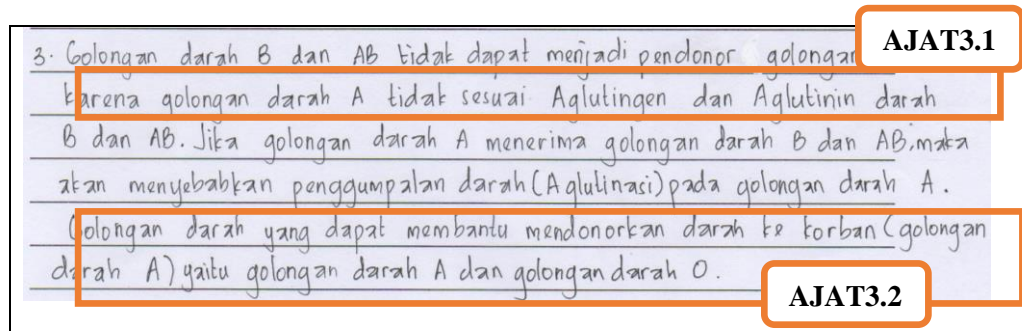 AJAT3.1
3. Golongan darah B dan AB tidak dapat menjadi pendonor golongan
karena golongan darah A tidak sesuai Aglutingen dan Aglutinin darah
B dan AB. Jika golongan darah A menerima golongan darah B dan AB, maka
akan menyebabkan penggumpalan darah (Aglutinasi) pada golongan darah A.
Golongan darah yang dapat membantu mendonorkan darah ke korban (golongan
darah A) yaitu golongan darah A dan golongan darah O.
AJAT3.2